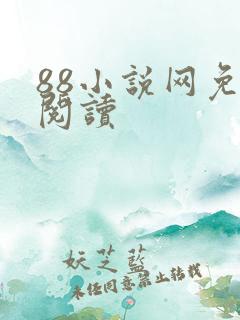 88小説网免
閱讀
妖芝藍
未经同意禁止转载